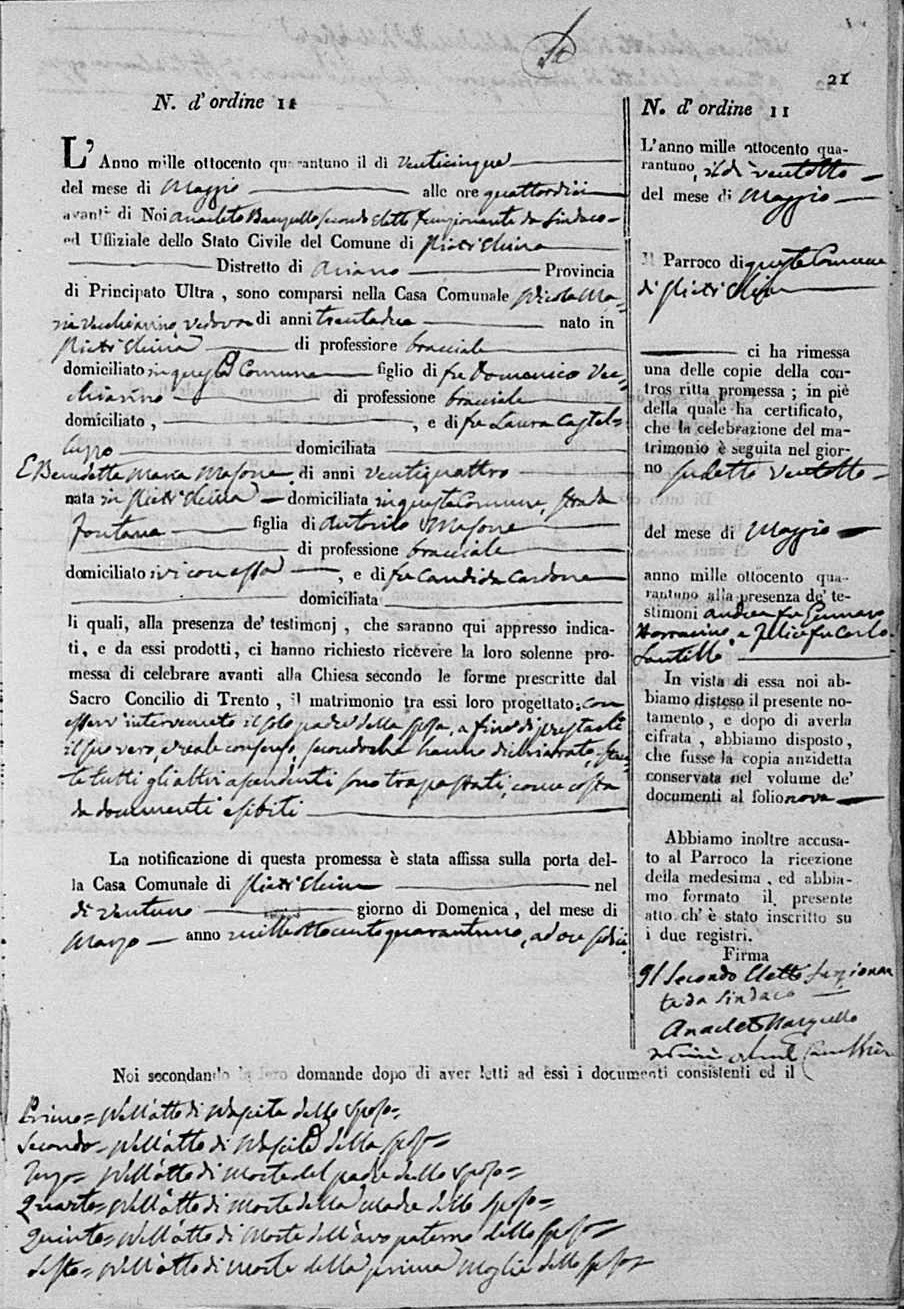 21
N. d'ordine 11
L'Anno mille ottocento quarantuno il di venticinque
del mese di Maggio alle ore quattordici
avanti di Noi Anacleto secondo Eletto funzionante da Sindaco
ed Uffiziale dello Stato Civile del Comune di Pietrelcina
Distretto di Ariano Provincia
di Principato Ultra, sono comparsi nella Casa Comunale Nicola Ma=
ria Vecchiarino, vedovo di anni trentadue nato in
Pietrelcina di professione bracciale
domiciliato in questo Comune figlio di fu Domenico Vec=
chiarino di professione bracciale
domiciliato, , e di fu Laura Castel=
luzzo domiciliata
E Benedetta Maria Masone di anni ventiquattro
nata in Pietrelcina domiciliata in questo Comune, strada
Fontana figlia di Antonio Masone
di professione bracciale
domiciliato ivi con essa, e di fu Candida Cardone
domiciliata
li quali, alla presenza de' testimonj, che saranno qui appresso indica-
ti, e da essi prodotti, ci hanno richiesto ricevere la loro solenne pro-
messa di celebrare avanti alla Chiesa secondo le forme prescritte dal
Sacro Concilio di Trento, il matrimonio tra essi loro progettato; con
esservi intervenuto il solo padre della sposa, a fine di prestarle
il suo vero, e reale consenso, secondoché hanno dichiarato,
te tutti gli altri ascendenti sono trapassati, come costa
da documenti esibiti
La notificazione di questa promessa è stata affissa sulla porta del-
la Casa Comunale di Pietrelcina nel
dì ventuno giorno di Domenica, del mese di
Marzo anno mille ottocento quarantuno, ad ore sedici
N. d'ordine 11
L'anno mille ottocento qua-
rantuno, il dì ventotto
del mese di Maggio
Il Parroco di questo Comune
di Pietrelcina
ci ha rimessa
una delle copie della con-
tros ritta promessa; in piè
della quale ha certificato,
che la celebrazione del ma-
trimonio è seguita nel gior-
no sudetto ventotto
del mese di Maggio
anno mille ottocento qua-
rantuno alla presenza de' te-
stimoni Andrea fu Gennaro
Iorracino, e Felice fu Carlo
Santillo
In vista di essa noi ab-
biamo disteso il presente no-
tamento, e dopo di averla
cifrata, abbiamo disposto,
che fusse la copia anzidetta
conservata nel volume de'
documenti al folio nova
Abbiamo inoltre accusa-
to al Parroco la ricezione
della medesima, ed abbia-
mo formato il presente
atto ch' è stato inscritto su
i due registri.
Firma
Il Secondo Eletto funzionan
te da Sindaco
Anacleto
Noi secondando le loro domande dopo di aver letti ad essi i documenti consistenti ed il
Primo= Nell'atto di Nascita dello sposo=
Secondo= Nell'atto di Nascita della sposa=
Terzo= Nell'atto di Morte del padre dello sposo=
Quarto= Nell'atto di Morte della Madre dello sposo=
Quinto= Nell'atto di Morte dell'avo paterno dello sposo=
Sesto= Nell'atto di Morte della prima Moglie dello sposo=